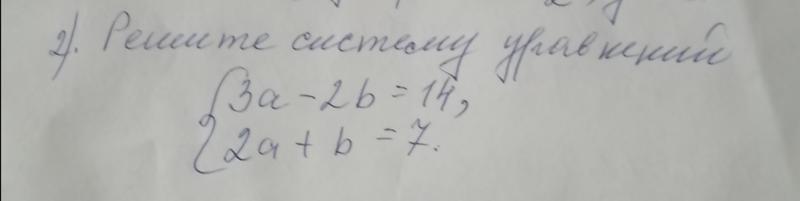 2). Решите систему уравнений
{3a - 2b = 14,
2a + b = 7.